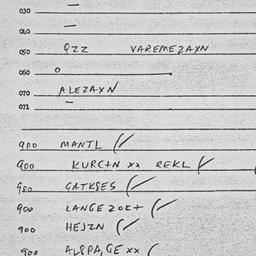 030 —
040 —
050 QZZ VAREMEZAXN
060 o
070 ALEZAXN
071 —
900 MANTL
900 KURC+N xx REKL
900 GATKSES
900 LANGEZOK+
900 HEJZN
900 ALSPA,GE xx